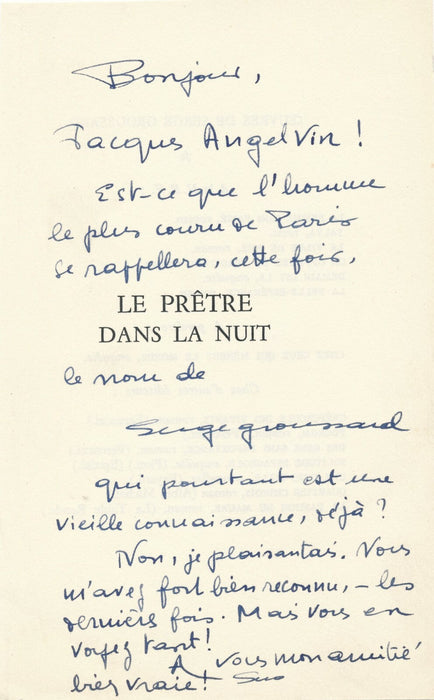 Bonjour,
Jacques Angelvin !
Est-ce que l'homme
le plus couru de Paris
se rappellera, cette fois,
LE PRÊTRE
DANS LA NUIT
le nom de
Serge groussard
qui pourtant est une
vieille connaissance, déjà ?
Non, je plaisantais. Vous
m'avez fort bien reconnu, – les
dernières fois. Mais vous en
voyez tant !
A vous mon amitié
bien vraie !